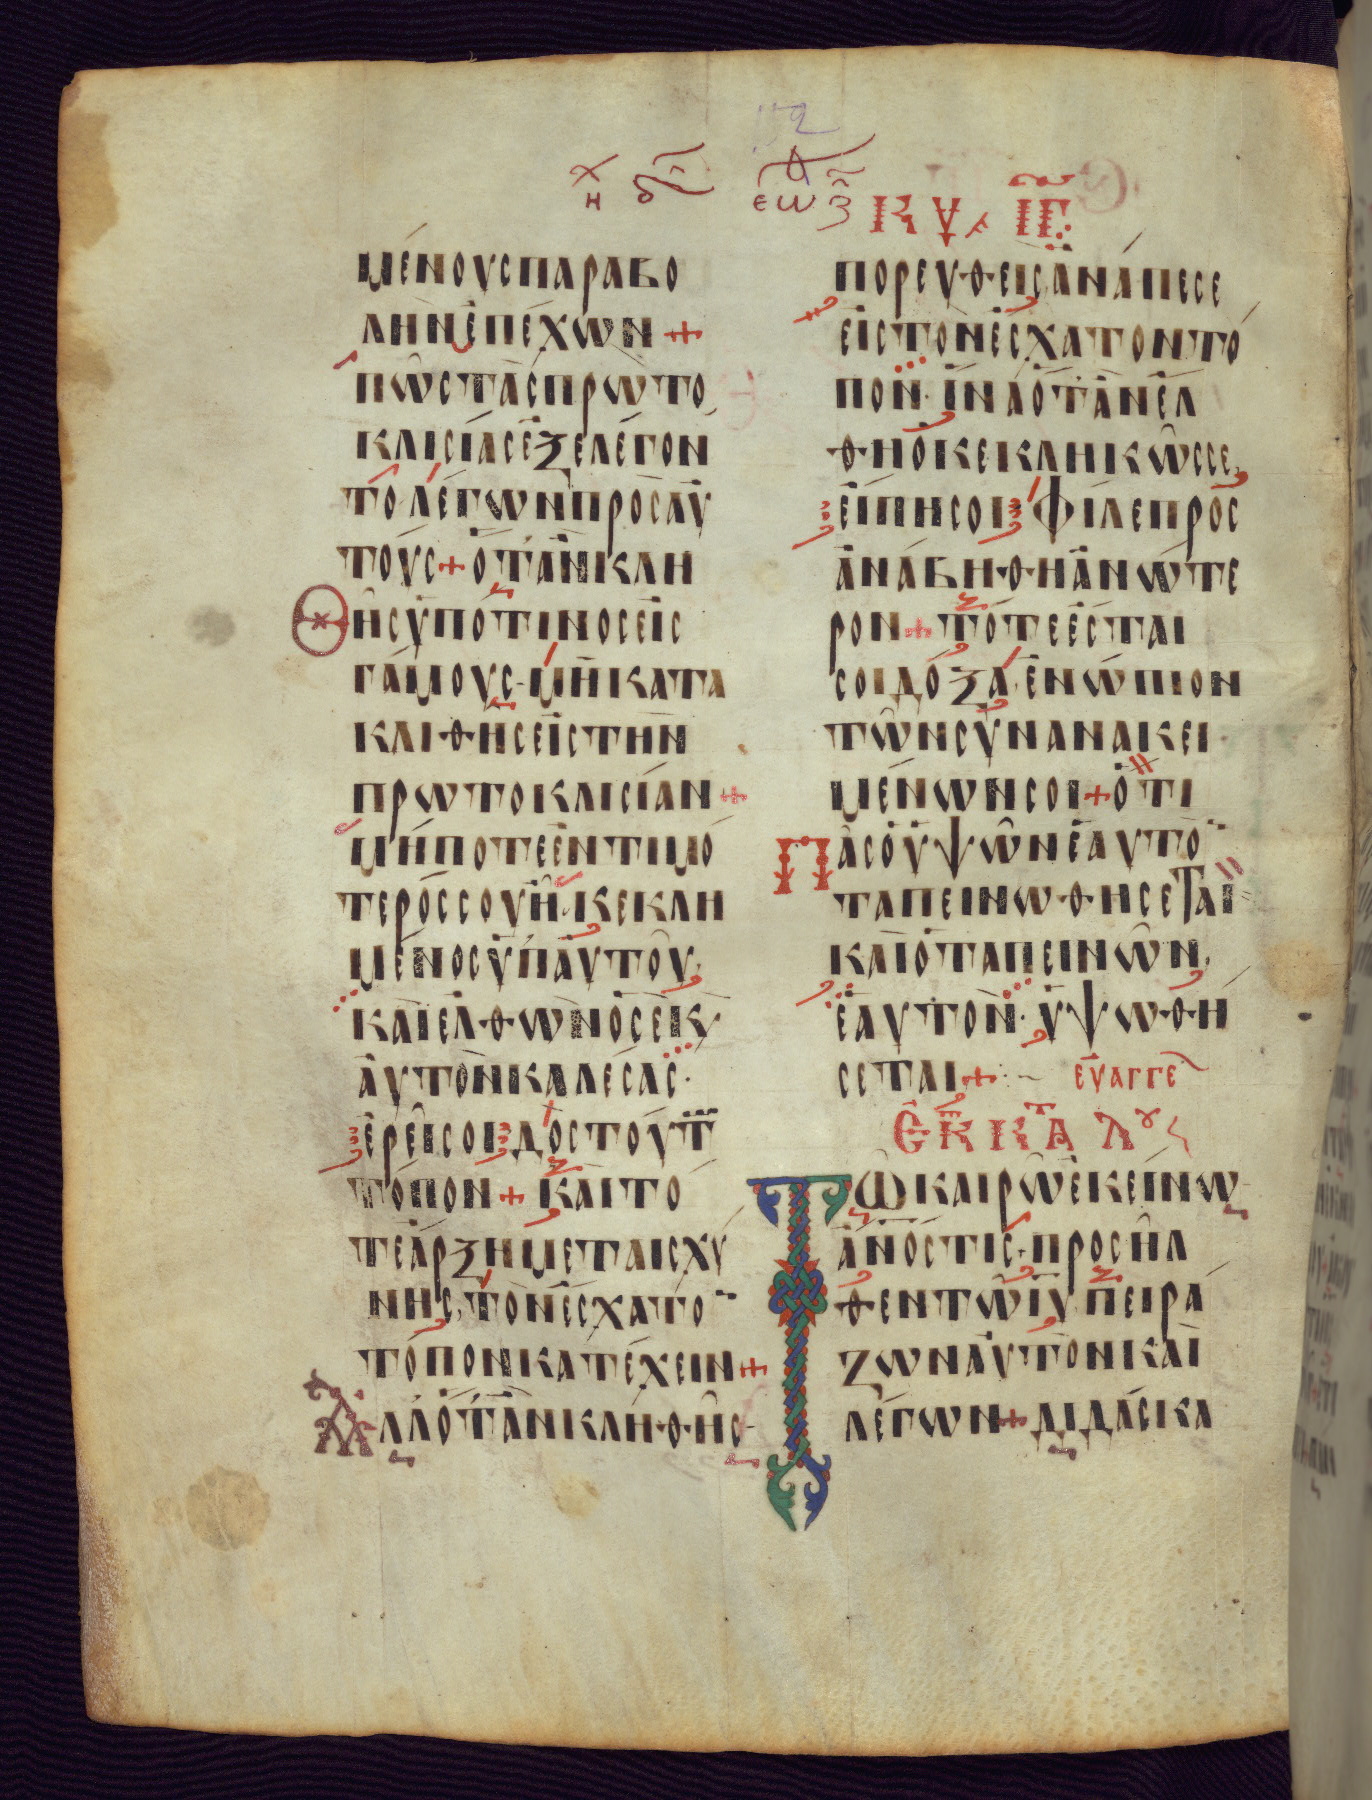 ΚΥ ΙΓ
ΜΕΝΟΥΣΠΑΡΑΒΟ
ΛΗΝΕΠΕΧΩΝ+
ΠΩΣΤΑΣΠΡΩΤΟ
ΚΛΙΣΙΑΣΕΞΕΛΕΓΟΝ
ΤΟ·ΛΕΓΩΝΠΡΟΣΑΥ
ΤΟΥΣ+ΟΤΑΝΚΛΗ
ΘΗΣΥΠΟΤΙΝΟΣΕΙΣ
ΓΑΜΟΥΣ·ΜΗΚΑΤΑ
ΚΛΙΘΗΣΕΙΣΤΗΝ
ΠΡΩΤΟΚΛΙΣΙΑΝ+
ΜΗΠΟΤΕΕΝΤΙΜΟ
ΤΕΡΟΣΣΟΥΗ·ΚΕΚΛΗ
ΜΕΝΟΣΥΠΑΥΤΟΥ·
ΚΑΙΕΛΘΩΝΟΣΕΚ
ΑΥΤΟΝΚΑΛΕΣΑΣ·
ΕΡΕΙΣΟΙΔΟΣΤΟΥΤ
ΤΟΠΟΝ+ΚΑΙΤΟ
ΤΕΑΡΞΗΜΕΤΑΙΣΧΥ
ΝΗΣ·ΤΟΝΕΣΧΑΤΟ
ΤΟΠΟΝΚΑΤΕΧΕΙΝ+
ΑΛΛΟΤΑΝΚΛΗΘΗΣ·
ΠΟΡΕΥΘΕΙΣΑΝΑΠΕΣΕ
ΕΙΣΤΟΝΕΣΧΑΤΟΝΤΟ
ΠΟΝ·ΙΝΑΟΤΑΝΕΛ
ΘΗΟΚΕΚΛΗΚΩΣΣΕ,
ΕΙΠΗΣΟΙΦΙΛΕΠΡΟΣ
ΑΝΑΒΗΘΗΑΝΩΤΕ
ΡΟΝ+ΤΟΤΕΕΣΤΑΙ
ΣΟΙΔΟΞΑ·ΕΝΩΠΙΟΝ
ΤΩΝΣΥΝΑΝΑΚΕΙ
ΜΕΝΩΝΣΟΙ+ΟΤΙ
ΠΑΣΟΥΨΩΝΕΑΥΤΟ
ΤΑΠΕΙΝΩΘΗΣΕΤΑΙ
ΚΑΙΟΤΑΠΕΙΝΩΝ,
ΕΑΥΤΟΝ·ΥΨΩΘΗ
ΣΕΤΑΙ+ ΕΥΑΓΓΕ
ΕΚ ΚΑΤΑ ΛΟΥ
ΤΩΚΑΙΡΩΕΚΕΙΝΩ
ΑΝΟΣΤΙΣ·ΠΡΟΣΗΛ
ΘΕΝΤΩΙΥ·ΠΕΙΡΑ
ΖΩΝΑΥΤΟΝΚΑΙ
ΛΕΓΩΝ+ΔΙΔΑΣΚΑ